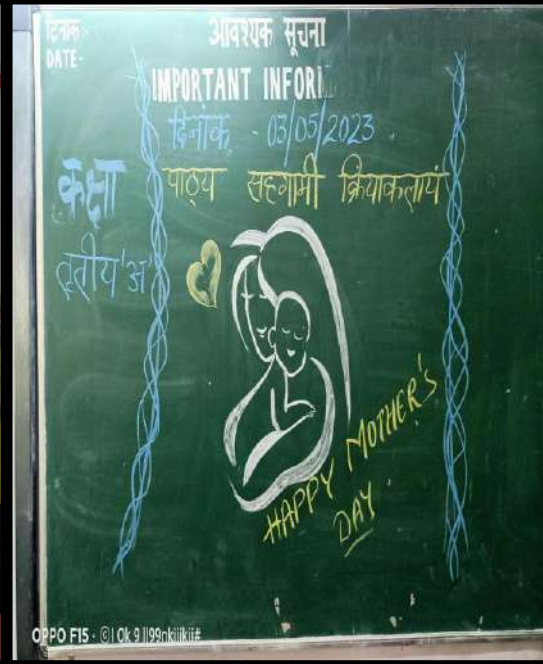 दिनांक:-
DATE-
आवश्यक सूचना
IMPORTANT INFOR
दिनांक - 03/05/2023
कक्षा
तृतीय 'अ'
पाठ्य सहगामी क्रियाकलाप
HAPPY MOTHER'S
DAY
OPPO F15 · ©| Ok 9 ll99nkiiikii#